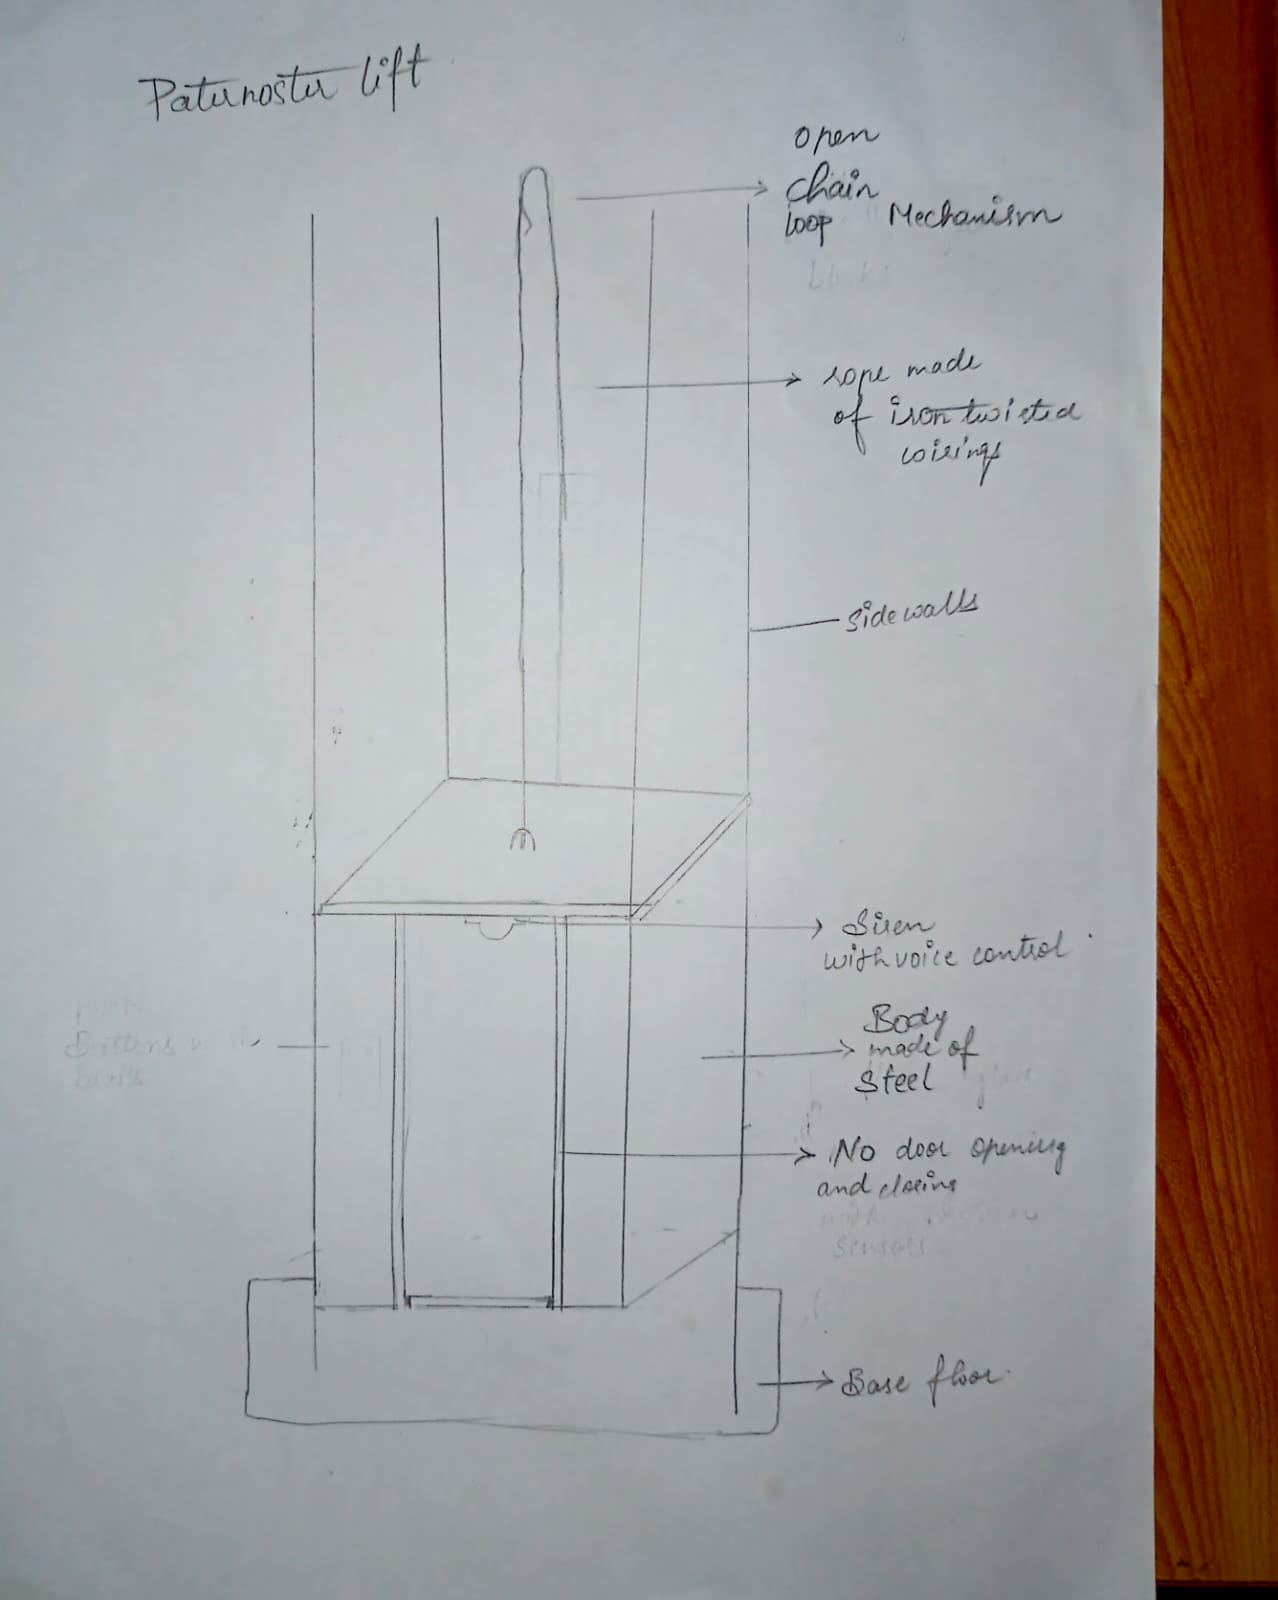 Paternoster lift
open
chain
loop Mechanism
rope made
of iron twisted
wirings
sidewalls
Siren
with voice control
Buttons
Body
made of
Steel
No door opening
and closing
sensors
Base floor